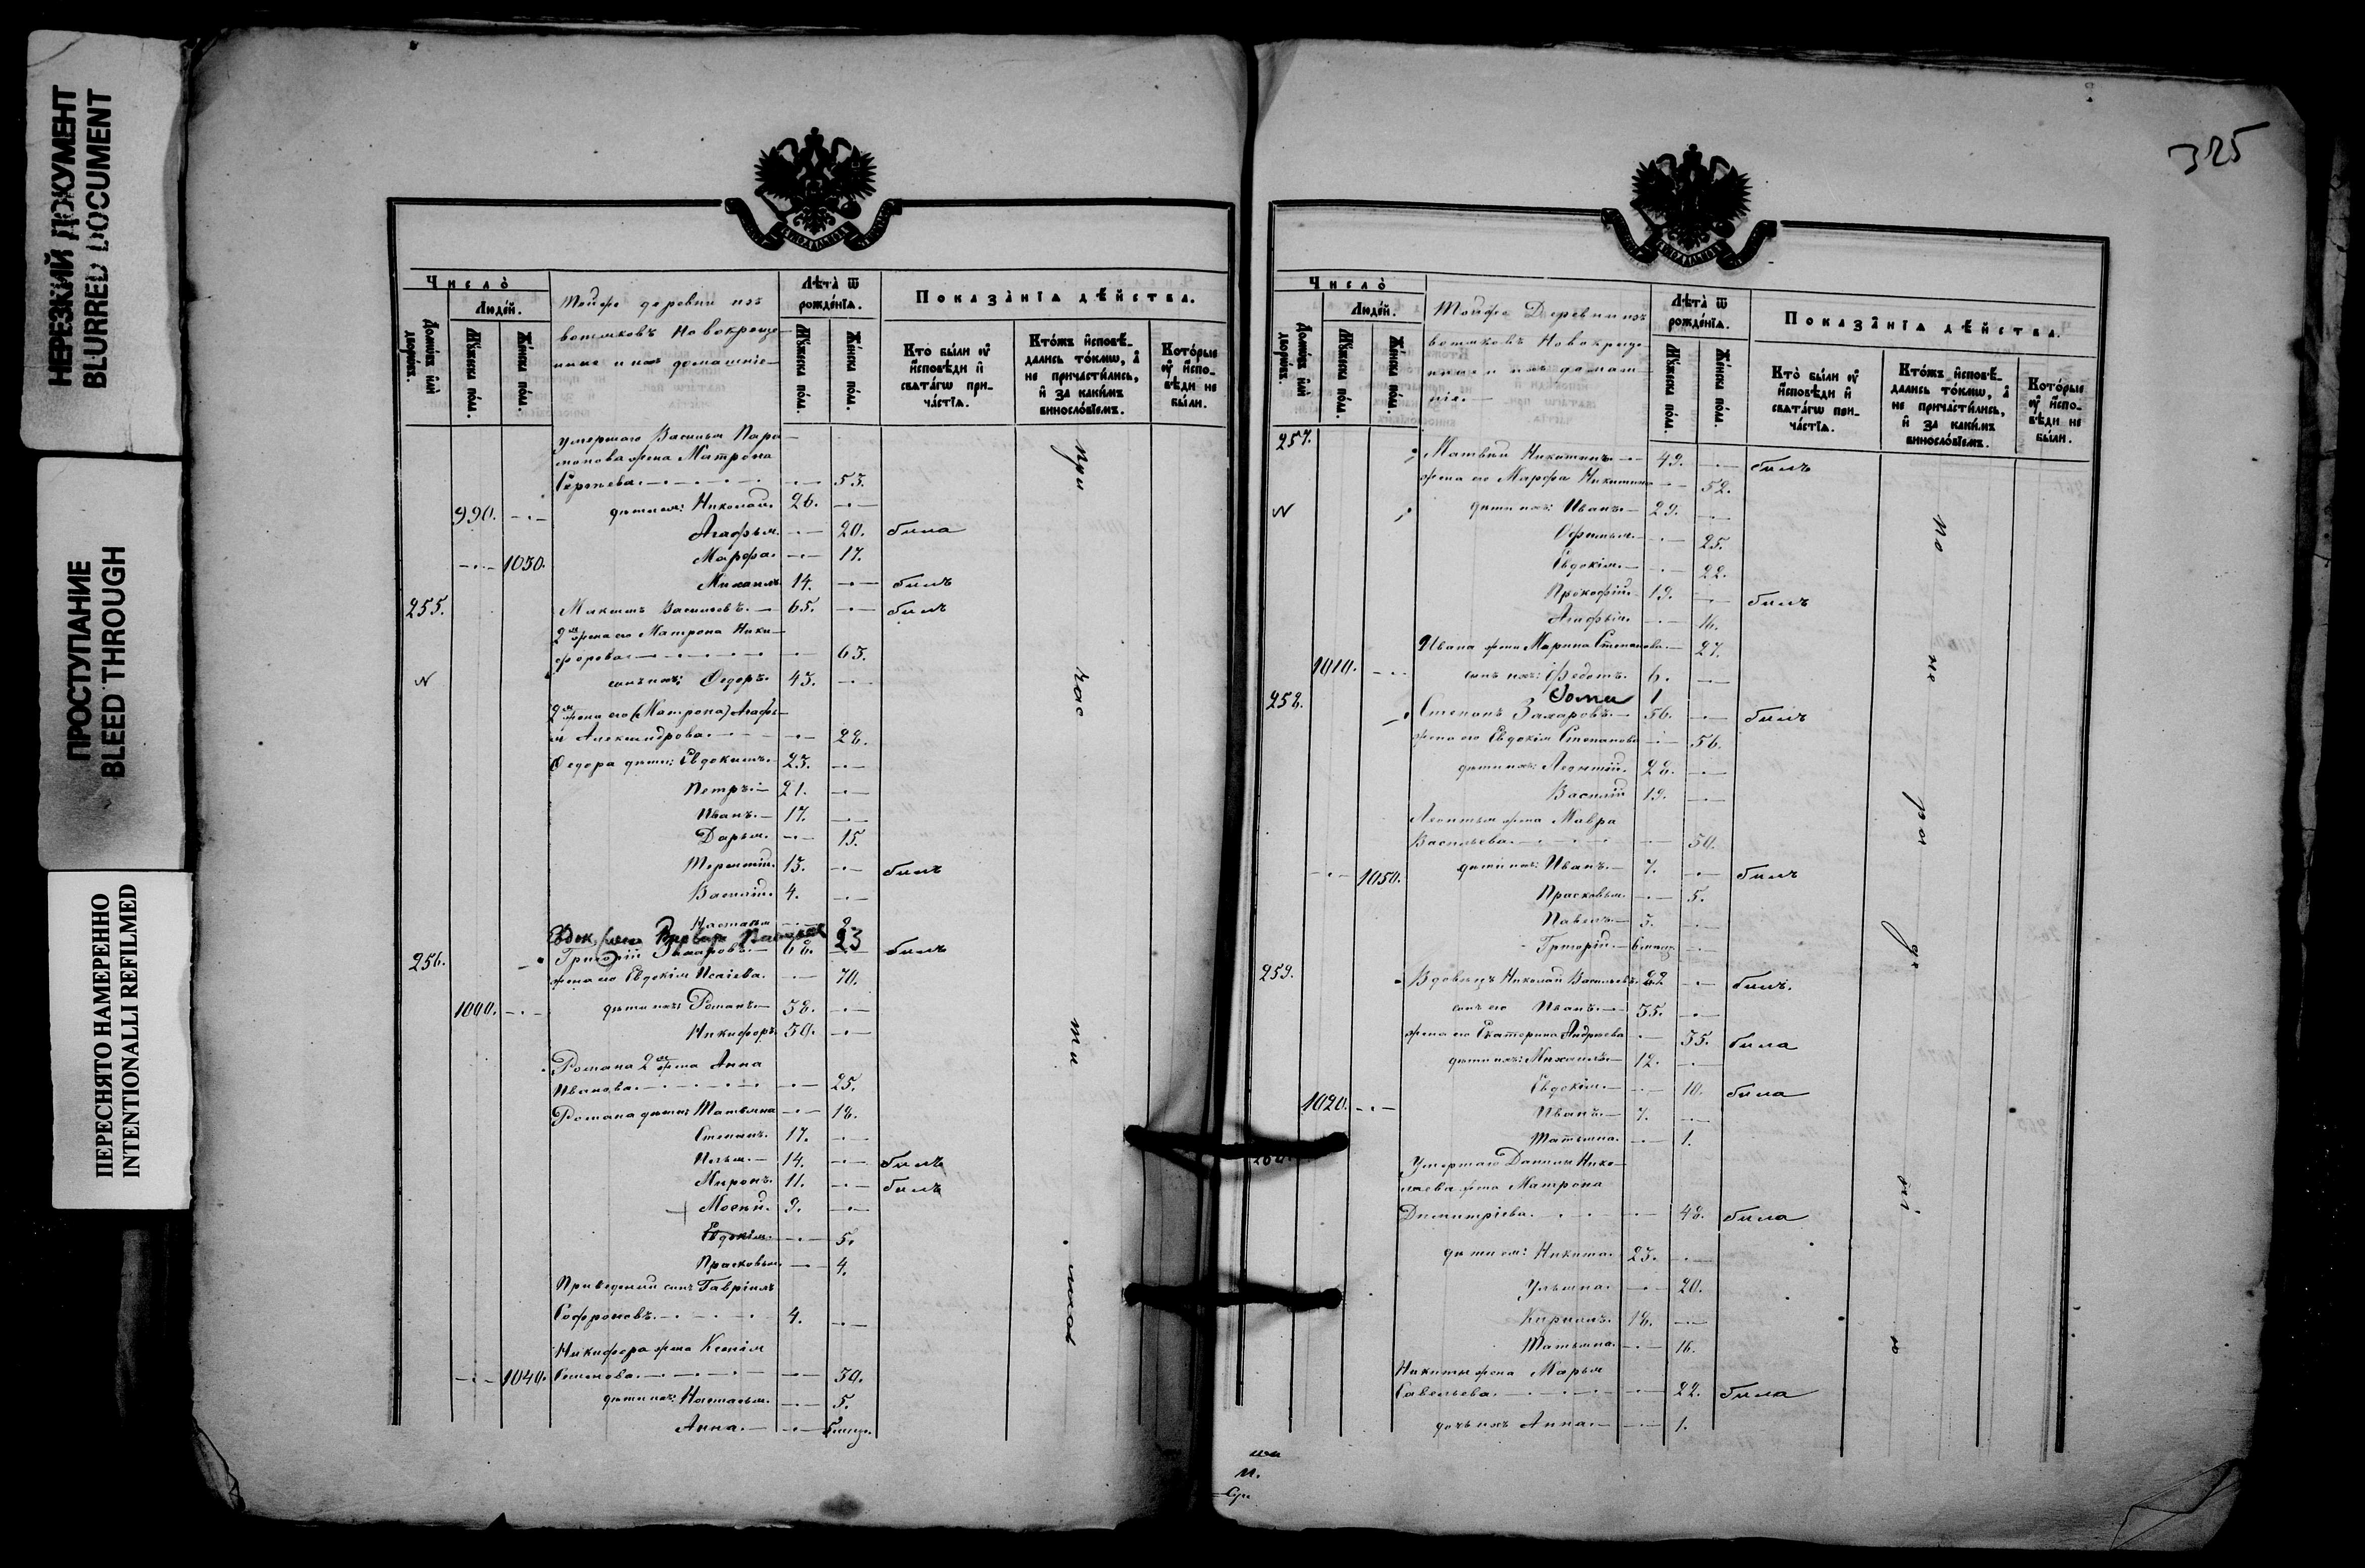 НЕРЕЗКИЙ ДОКУМЕНТ
BLURRED DOCUMENT
ПРОСТУПАНИЕ
BLEED THROUGH
ПЕРЕСНЯТО НАМЕРЕННО
INTENTIONALLI REFILMED
Число̀
Люде́й.
Домѡ́въ и҆лѝ дворѡ́въ.
Мꙋ́жеска по́ла.
Же́нска по́ла.
Тойже деревни изъ
вотяковъ Новокреще-
ные и ихъ домашніе
Лѣ́та ѿ
рожде́нїѧ.
Мꙋ́жеска по́ла.
Же́нска по́ла.
Показа̑нїѧ дѣ́йства.
Кто̀ бы́ли ᲂу҆
и҆сповѣди и҆
свѧта́гѡ при-
ча́стїѧ.
Кто́жъ и҆сповѣ́-
дались то́кмѡ, а҆
не причасти́лись,
и҆ за каки́мъ
винослов́їемъ.
Кото́рые
ᲂу҆ и҆спо-
вѣ́ди не
бы́ли.
умершаго Василья Пара-
монова жена Матрона
Сергѣева. 53.
990. дѣти ея: Николай. 26.
Агафья. 20. была
1030. Марфа. 17.
Михаилъ 14. былъ
255. Максимъ Васильевъ. 65. былъ
2я жена его Матрона Ники-
форова 63.
N сынъ ихъ: Ѳедоръ. 43.
2я жена его (Матрона) Агафь-
я Александрова. 28.
Ѳедора дѣти: Евдокимъ. 23.
Петръ. 21.
Иванъ. 17.
Дарья. 15.
Терентій. 13. былъ
Василій. 4.
Настасья 2
Евдок. жена Варвара 23
256. Григорій Захаровъ. 68. былъ
жена его Евдокія Исаіева. 70.
1000. дѣти ихъ: Романъ 38.
Никифоръ. 30.
Романа 2я жена Анна
Иванова. 25.
Романа дѣти: Татьяна 18.
Степанъ. 17.
Илья. 14. былъ
Миронъ. 11. былъ
Мосѣй. 9.
Евдокія. 5.
Прасковья. 4.
Приведеный сынъ Гавріилъ
Софроновъ. 4.
Никифора жена Ксенія
1040. Семенова. 30.
дѣти ихъ: Настасья. 5.
Анна. 6 мѣся.
при час ти лись
325
Число̀
Люде́й.
Домѡ́въ и҆лѝ дворѡ́въ.
Мꙋ́жеска по́ла.
Же́нска по́ла.
Тойже Деревни изъ
вотяковъ Новокреще-
ные и ихъ домаш-
ніе.
Лѣ́та ѿ
рожде́нїѧ.
Мꙋ́жеска по́ла.
Же́нска по́ла.
Показа̑нїѧ дѣ́йства.
Кто̀ бы́ли ᲂу҆
и҆сповѣди и҆
свѧта́гѡ при-
ча́стїѧ.
Кто́жъ и҆сповѣ́-
дались то́кмѡ, а҆
не причасти́лись,
и҆ за каки́мъ
винослов́їемъ.
Кото́рые
ᲂу҆ и҆спо-
вѣ́ди не
бы́ли.
257. Матвѣй Никитинъ 49. былъ
жена его Марфа Никитина 52.
N дѣти ихъ: Иванъ 29.
Офимья. 25.
Евдокія. 22.
Прокофій. 19. былъ
Агафья. 16.
Ивана жена Марина Степанова 27.
1010. сынъ ихъ: Федотъ. 6.
Фома 1
258. Степанъ Захаровъ. 56. былъ
жена его Евдокія Степанова 56.
дѣти ихъ: Леонтій. 28.
Василій 19.
Леонтья жена Мавра
Васильева. 30.
1050. дѣти ихъ: Иванъ. 7. былъ
Прасковья. 5.
Павелъ 3.
Григорій. 6 мѣсяц.
259. Вдовецъ Николай Васильевъ. былъ.
сынъ его Иванъ. 35.
жена его Екатерина Андреева 35. была
дѣти ихъ: Михаилъ 12.
Евдокія. 10. была
1020. Иванъ. 7.
Татьяна. 1.
260. Умершаго Данилы Нико-
лаева жена Матрона
Димитріева. 48. была
дѣти ея: Никита. 23.
Ульяна. 20.
Кирилъ. 18.
Татьяна. 16.
Никиты жена Марья
Савельева. 22. была
дочь ихъ Анна. 1.